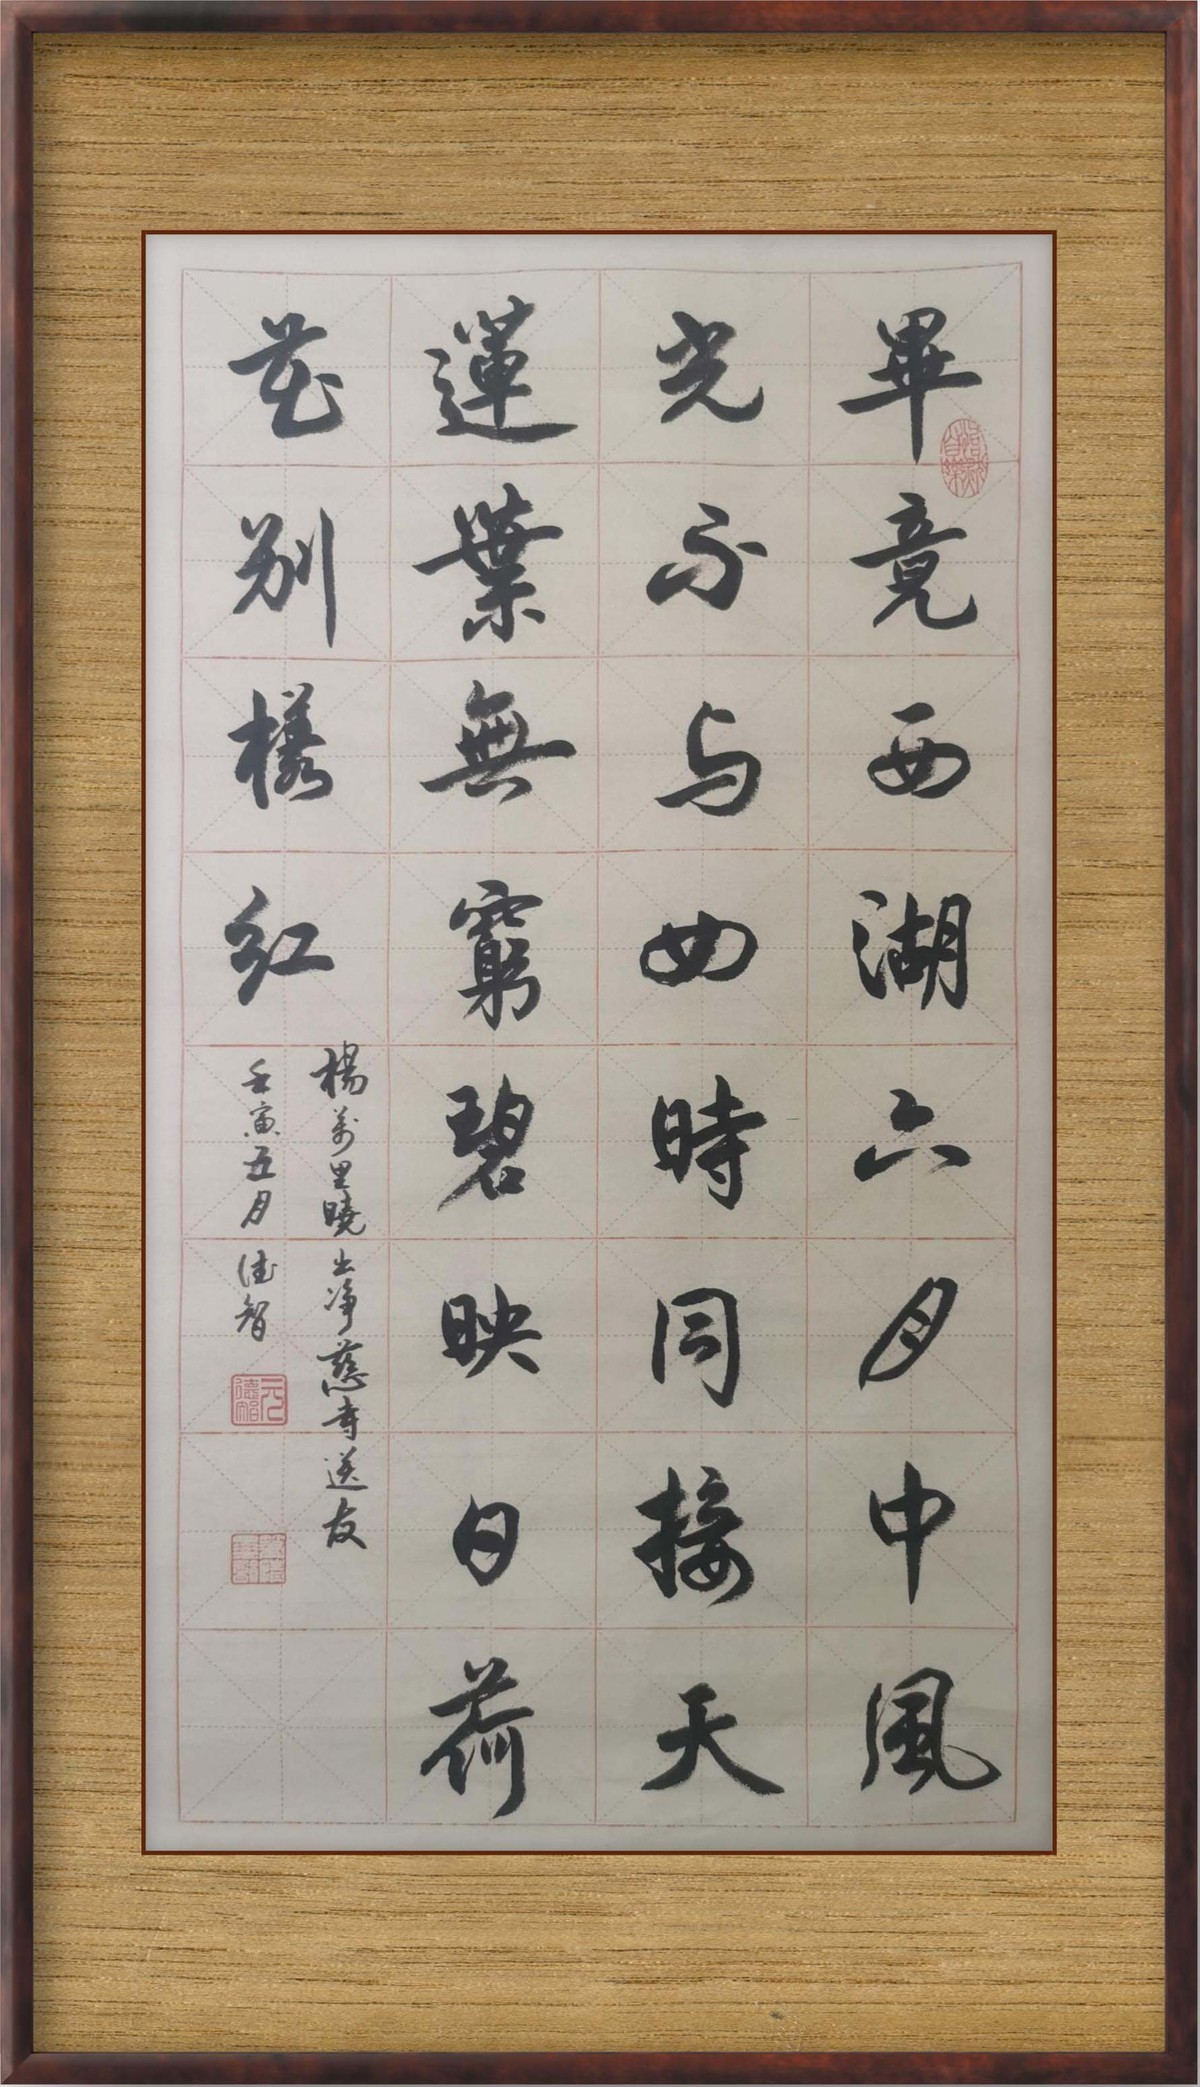 畢竟西湖六月中風
光不与四時同接天
蓮葉無窮碧映日荷
花别樣红
楊萬里曉出净慈寺送友
壬寅五月德智